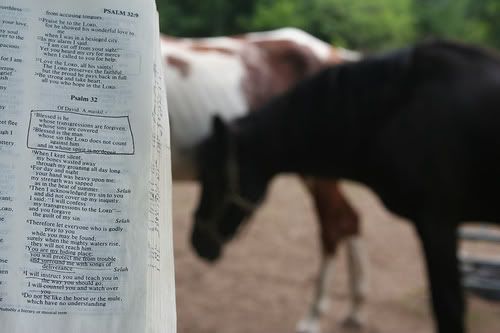 from accusing tongues. PSALM 32:9
Praise be to the LORD,
for he showed his wonderful love to
me
when I was in a besieged city.
In my alarm I said,
"I am cut off from your sight!"
Yet you heard my cry for mercy
when I called to you for help.
Love the LORD, all his saints!
The LORD preserves the faithful,
but the proud he pays back in full.
Be strong and take heart,
all you who hope in the LORD.
Psalm 32
Of David. A maskil.
Blessed is he
whose transgressions are forgiven,
whose sins are covered.
Blessed is the man
whose sin the LORD does not count
against him
and in whose spirit is no deceit.
When I kept silent,
my bones wasted away
through my groaning all day long.
For day and night
your hand was heavy upon me;
my strength was sapped
as in the heat of summer. Selah
Then I acknowledged my sin to you
and did not cover up my iniquity.
I said, "I will confess
my transgressions to the LORD"—
and you forgave
the guilt of my sin. Selah
Therefore let everyone who is godly
pray to you
while you may be found;
surely when the mighty waters rise,
they will not reach him.
You are my hiding place;
you will protect me from trouble
and surround me with songs of
deliverance. Selah
I will instruct you and teach you in
the way you should go;
I will counsel you and watch over
you.
Do not be like the horse or the mule,
which have no understanding
Probably a literary or musical term